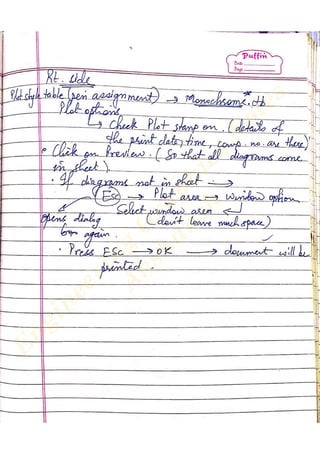 Puffin
Date
Page
Rt. Side
Plot style table (pen assignment) → Monochrome.ctb
Plot options
↳ Check Plot stamp on. (details of
the print date, time, comp. no. are there)
• Click on Preview. (So that all diagrams come
in sheet).
• If diagrams not in sheet →
Esc → Plot area → window option
opens dialog Select window area ↵
box again. (don't leave much space)
• Press ESC → OK → document will be
printed.